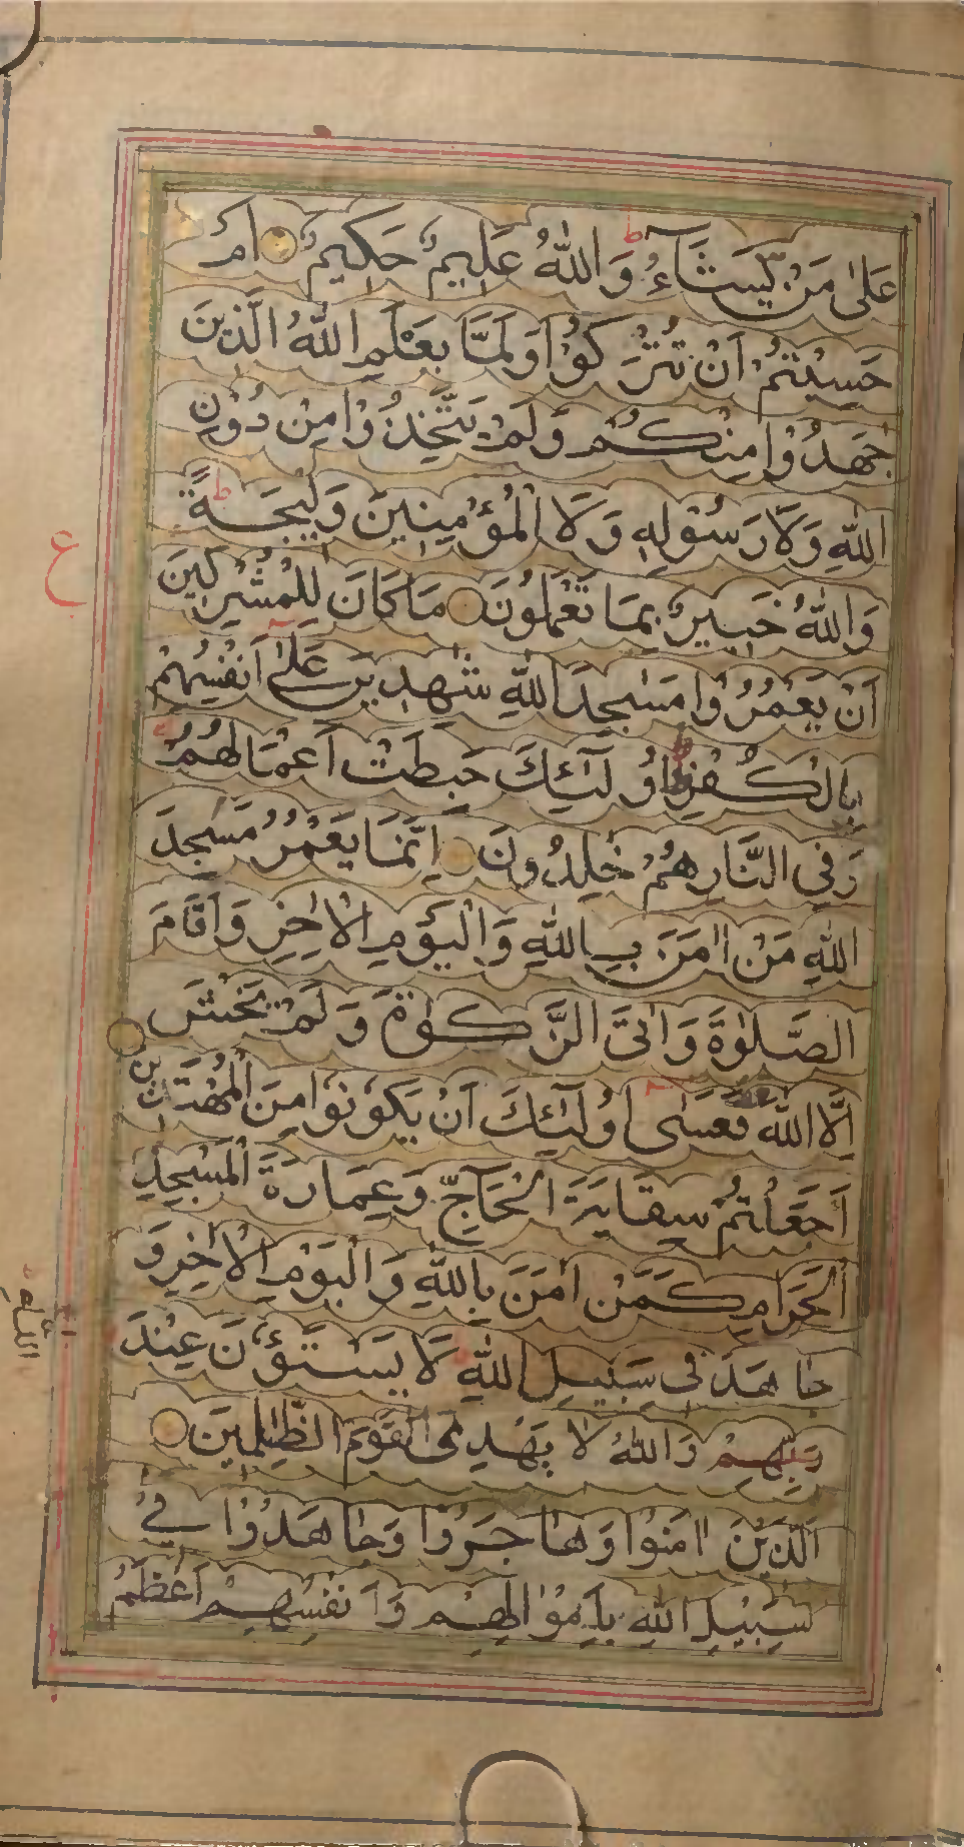 عَلٰى مَنْ يَّشَآءُ ط وَاللّٰهُ عَلِيمٌ حَكِيمٌ ۝ اَمْ
حَسِبْتُمْ اَنْ تُتْرَكُوْا وَلَمَّا يَعْلَمِ اللّٰهُ الَّذِينَ
جٰهَدُوْا مِنْكُمْ وَلَمْ يَتَّخِذُوْا مِنْ دُوْنِ
اللّٰهِ وَلَا رَسُوْلِهٖ وَلَا الْمُؤْمِنِينَ وَلِيْجَةً ط
وَاللّٰهُ خَبِيرٌ بِمَا تَعْمَلُوْنَ ۝ مَا كَانَ لِلْمُشْرِكِينَ
ع
اَنْ يَعْمُرُوْا مَسٰجِدَ اللّٰهِ شٰهِدِينَ عَلٰى اَنْفُسِهِمْ
بِالْكُفْرِ ط اُولٰٓئِكَ حَبِطَتْ اَعْمَالُهُمْ
وَفِي النَّارِ هُمْ خٰلِدُونَ ۝ اِنَّمَا يَعْمُرُ مَسٰجِدَ
اللّٰهِ مَنْ اٰمَنَ بِاللّٰهِ وَالْيَوْمِ الْاٰخِرِ وَاَقَامَ
الصَّلٰوةَ وَاٰتَى الزَّكٰوةَ وَلَمْ يَخْشَ
اِلَّا اللّٰهَ فَعَسٰى اُولٰٓئِكَ اَنْ يَكُوْنُوْا مِنَ الْمُهْتَدِينَ
اَجَعَلْتُمْ سِقَايَةَ الْحَآجِّ وَعِمَارَةَ الْمَسْجِدِ
الْحَرَامِ كَمَنْ اٰمَنَ بِاللّٰهِ وَالْيَوْمِ الْاٰخِرِ وَ
جَاهَدَ فِى سَبِيلِ اللّٰهِ لَا يَسْتَوٗنَ عِنْدَ
رَبِّهِمْ وَاللّٰهُ لَا يَهْدِى الْقَوْمَ الظّٰلِمِينَ ۝
اَلَّذِيْنَ اٰمَنُوْا وَهَاجَرُوْا وَجَاهَدُوْا فِيْ
سَبِيْلِ اللّٰهِ بِاَمْوَالِهِمْ وَاَنْفُسِهِمْ اَعْظَمُ